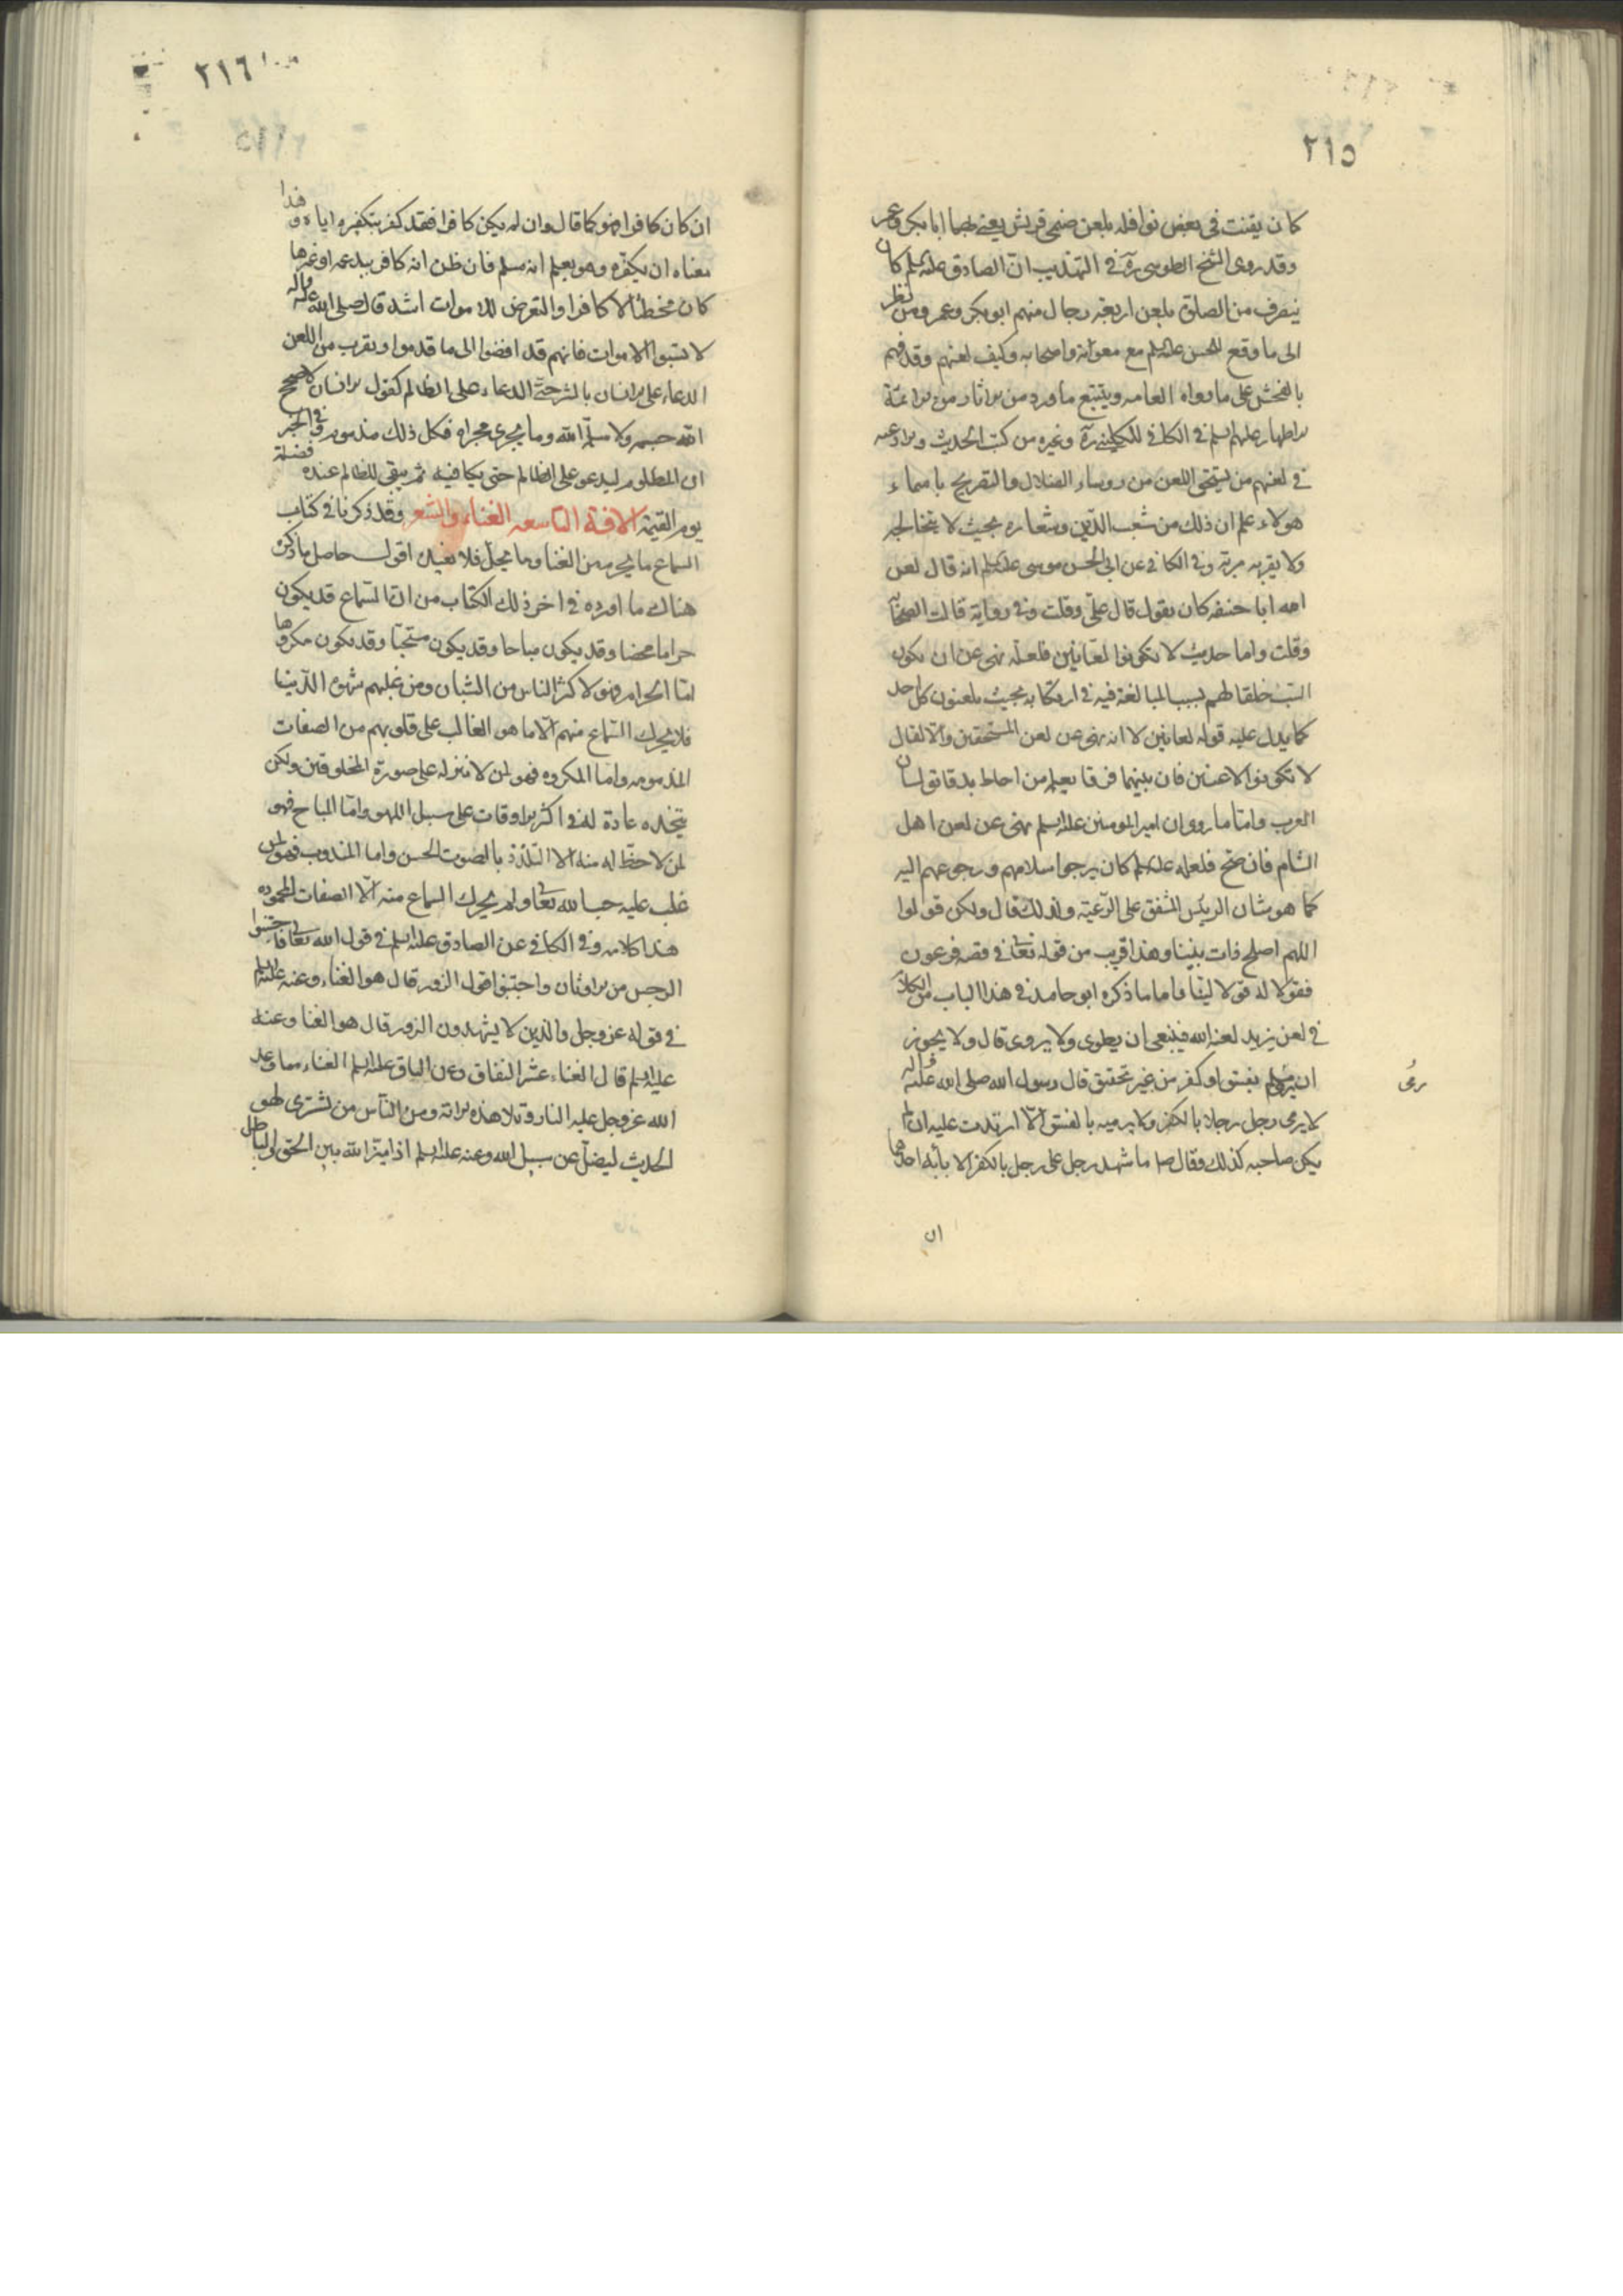 ٢١٥
كان يقنت في بعض نوافله بلعن صنمي قريش يعني بهما ابا بكر وعمر
وقد روى الشيخ الطوسي ره في التهذيب ان الصادق عليه السلم كان
ينصرف من الصلوة بلعن اربعة رجال منهم ابو بكر وعمر ومن نظر
الى ما وقع للحسن عليه السلم مع معوية واصحابه وكيف لعنهم وقد فهم
بالفحش على ما رواه العامه ويتتبع ما ورد من الاثار من الائمة
الاطهار عليهم السلم في الكافي للكليني ره وغيره من كتب الحديث والادعيه
في لعنهم من يستحق اللعن من روساء الضلال والتصريح باسماء
هولاء علم ان ذلك من شعب الدين وشعاره بحيث لا يتخالجه
ولا يقربه مرية وفي الكافي عن ابي الحسن موسى عليه السلم انه قال لعن
الله ابا حنيفه كان يقول قال علي وقلت وفي رواية قالت الصحابة
وقلت واما حديث لا تكونوا لعانين فلعله نهى عن ان يكون
السب خلقا لهم بسبب المبالغة فيه في ارتكابه بحيث يلعنون كل احد
كما يدل عليه قوله لعانين لا انه نهى عن لعن المستحقين والا لقال
لا تكونوا لاعنين فان بينهما فرقا يعلم من احاط بدقائق لسان
العرب واما ما روو ان امير المومنين عليه السلم نهى عن لعن اهل
الشام فان صح فلعله عليه السلم كان يرجوا اسلامهم ورجوعهم اليه
كما هو شان الرئيس المشفق على الرعية ولذلك قال ولكن قولوا
اللهم اصلح ذات بيننا وهذا قريب من قوله تعالى في قصه فرعون
فقولا له قولا لينا فاما ما ذكره ابو حامد في هذا الباب من الكلام
في لعن يزيد لعنه الله فينبغي ان يطوى ولا يروى قال ولا يجوز
ان يرمى مسلم بفسق او كفر من غير تحقيق قال رسول الله صلى الله عليه واله
لا يرمى رجل رجلا بالكفر ولا يرميه بالفسق الا ارتدت عليه ان لم
يكن صاحبه كذلك وقال ص ما شهد رجل على رجل بالكفر الا باء به احدهما
ان
٢١٦
ان كان كافرا فهو كما قال وان لم يكن كافرا فقد كفر بتكفيره اياه وهذا
معناه ان يكفره وهو يعلم انه مسلم فان ظن انه كافر ببدعه او غيرها
كان مخطئا لا كافرا والتعرض للاموات اشد قال صلى الله عليه واله
لا تسبوا الاموات فانهم قد افضوا الى ما قدموا ويقرب من اللعن
الدعاء على الانسان بالشر حتى الدعاء على الظالم كقول الانسان لا صحح
الله جسمه ولا سلمه الله وما يجري مجراه فكل ذلك مذموم وفي الخبر
ان المظلوم ليدعو على الظالم حتى يكافيه ثم يبقى للظالم عنده فضلة
يوم القيمة الافة التاسعه الغناء والشعر وقد ذكرنا في كتاب
السماع ما يحرم من الغنا وما يحل فلا نعيده اقول حاصل ما ذكره
هناك ما اورده في اخر ذلك الكتاب من ان السماع قد يكون
حراما محضا وقد يكون مباحا وقد يكون مستحبا وقد يكون مكروها
اما الحرام فهو لاكثر الناس من الشبان ومن غلبهم شهوة الدنيا
فلا يحرك السماع منهم الا ما هو الغالب على قلوبهم من الصفات
المذمومه واما المكروه فهو لمن لا ينزله على صورة المخلوقين ولكن
يتخذه عادة له في اكثر الاوقات على سبيل اللهو واما المباح فهو
لمن لا حظ له منه الا التلذذ بالصوت الحسن واما المندوب فهو لمن
غلب عليه حب الله تعالى ولم يحرك السماع منه الا الصفات المحموده
هذا كلامه وفي الكافي عن الصادق عليه السلم في قول الله تعالى فاجتنبوا
الرجس من الاوثان واجتنبوا قول الزور قال هو الغناء وعنه عليه السلم
في قوله عز وجل والذين لا يشهدون الزور قال هو الغنا وعنه
عليه السلم قال الغناء عش النفاق وعن الباقر عليه السلم الغناء مما وعد
الله عز وجل عليه النار وتلا هذه الاية ومن الناس من يشترى لهو
الحديث ليضل عن سبيل الله وعنه عليه السلم اذا ميز الله بين الحق والباطل